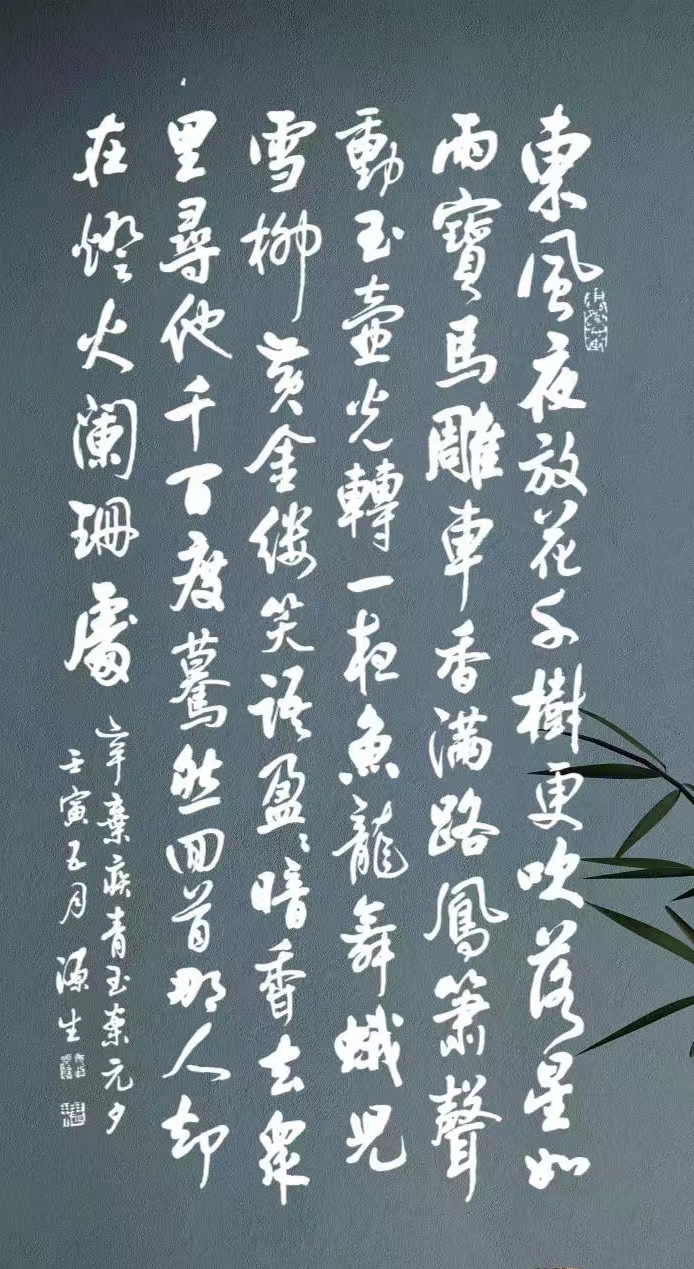 東風夜放花千樹更吹落星如
雨寶馬雕車香滿路鳳箫聲
動玉壺光轉一夜魚龍舞蛾兒
雪柳黃金缕笑語盈〻暗香去衆
里尋他千百度驀然回首那人却
在燈火闌珊處
辛棄疾青玉案元夕
壬寅五月源生